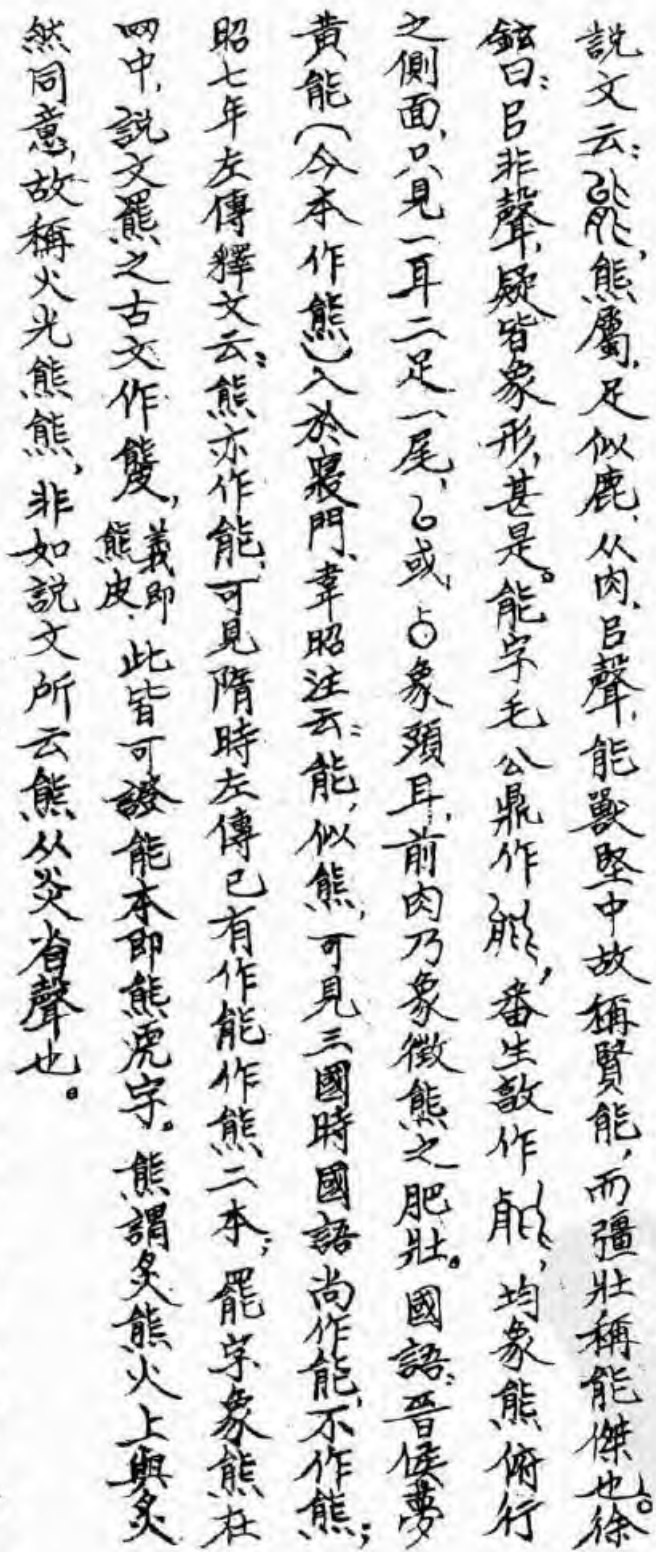 説文云：能，熊屬，足似鹿，从肉，㠯聲，能獸堅中故稱賢能，而彊壯稱能傑也。徐
鉉曰：㠯非聲，疑皆象形，甚是。能字毛公鼎作，番生𣪘作，均象熊俯行
之側面，只見一耳二足一尾，或象頭耳，前肉乃象徵熊之肥壯。國語：晉侯夢
黃能（今本作熊）入於寢門，韋昭注云：能，似熊，可見三國時國語尚作能，不作熊；
昭七年左傳釋文云：熊亦作能，可見隋時左傳已有作能作熊二本；罷字象熊在
网中，説文羆之古文作䍦，義即熊皮，此皆可證能本即熊虎字。熊謂炙熊火上與炙
然同意，故稱火光熊熊，非如説文所云熊从炎省聲也。